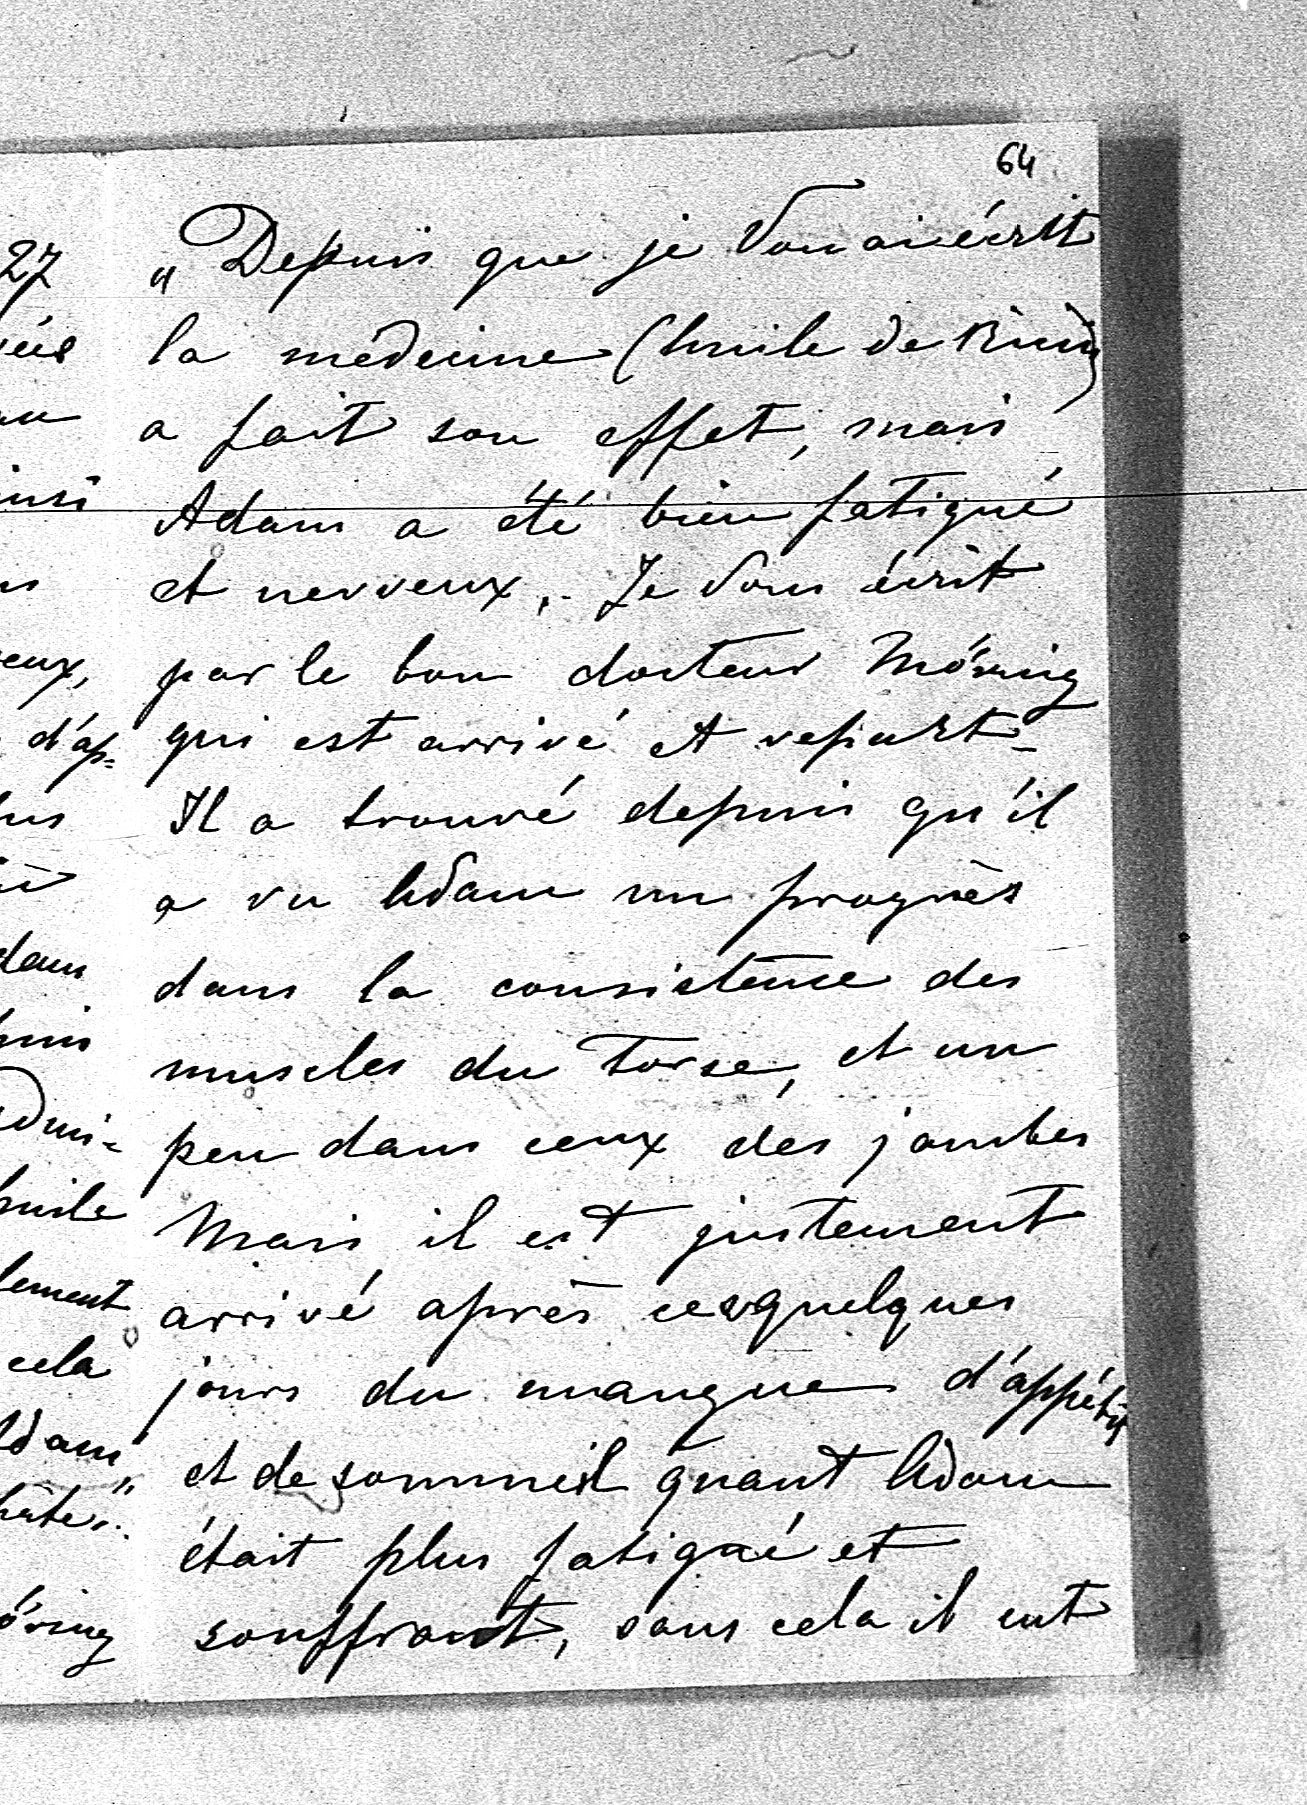 64
„Depuis que je Vous ai écrit
la médecine (huile de Ricin)
a fait son effet, mais
Adam a été bien fatigué
et nerveux. Je Vous écrit
par le bon docteur Möring
qui est arrivé et repart-
Il a trouvé depuis qu'il
a vu Adam un progrès
dans la consistence des
muscles du Torse, et un
peu dans ceux des jambes
Mais il est justement
arrivé après ces quelques
jours du manque d'appétit
et de sommeil quant Adam
était plus fatigué et
souffrant, sans cela il eut
27
eux,
d'ap=
dam
huile
lement
cela
Adam,
öring